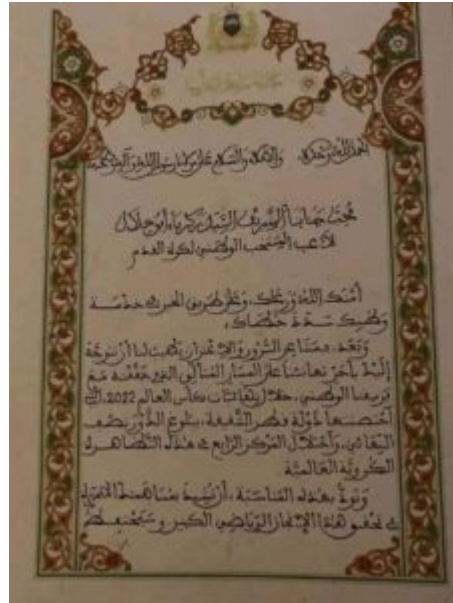 الحمد لله وحده، والصلاة والسلام على مولانا رسول الله وآله وصحبه
محب جنابنا الشريف السيد زكرياء أبو خلال
لاعب المنتخب الوطني لكرة القدم
أمنك الله ورعاك، وعلى طريق الخير في خدمة
وطنك سدد خطاك،
وبعد، فمشاعر السرور والاعتزاز يطيب لنا أن نتوجه
إليك بأحر تهانئنا على المسار المثالي الذي حققته مع
فريقنا الوطني، خلال نهائيات كأس العالم 2022، التي
احتضنتها دولة قطر الشقيقة، ببلوغ الدور نصف
النهائي، واحتلال المركز الرابع في هذه التظاهرة
الكروية العالمية
ونود بهذه المناسبة، أن نشيد بمساهمتك
في تحقيق هذا الإنجاز الرياضي الكبير